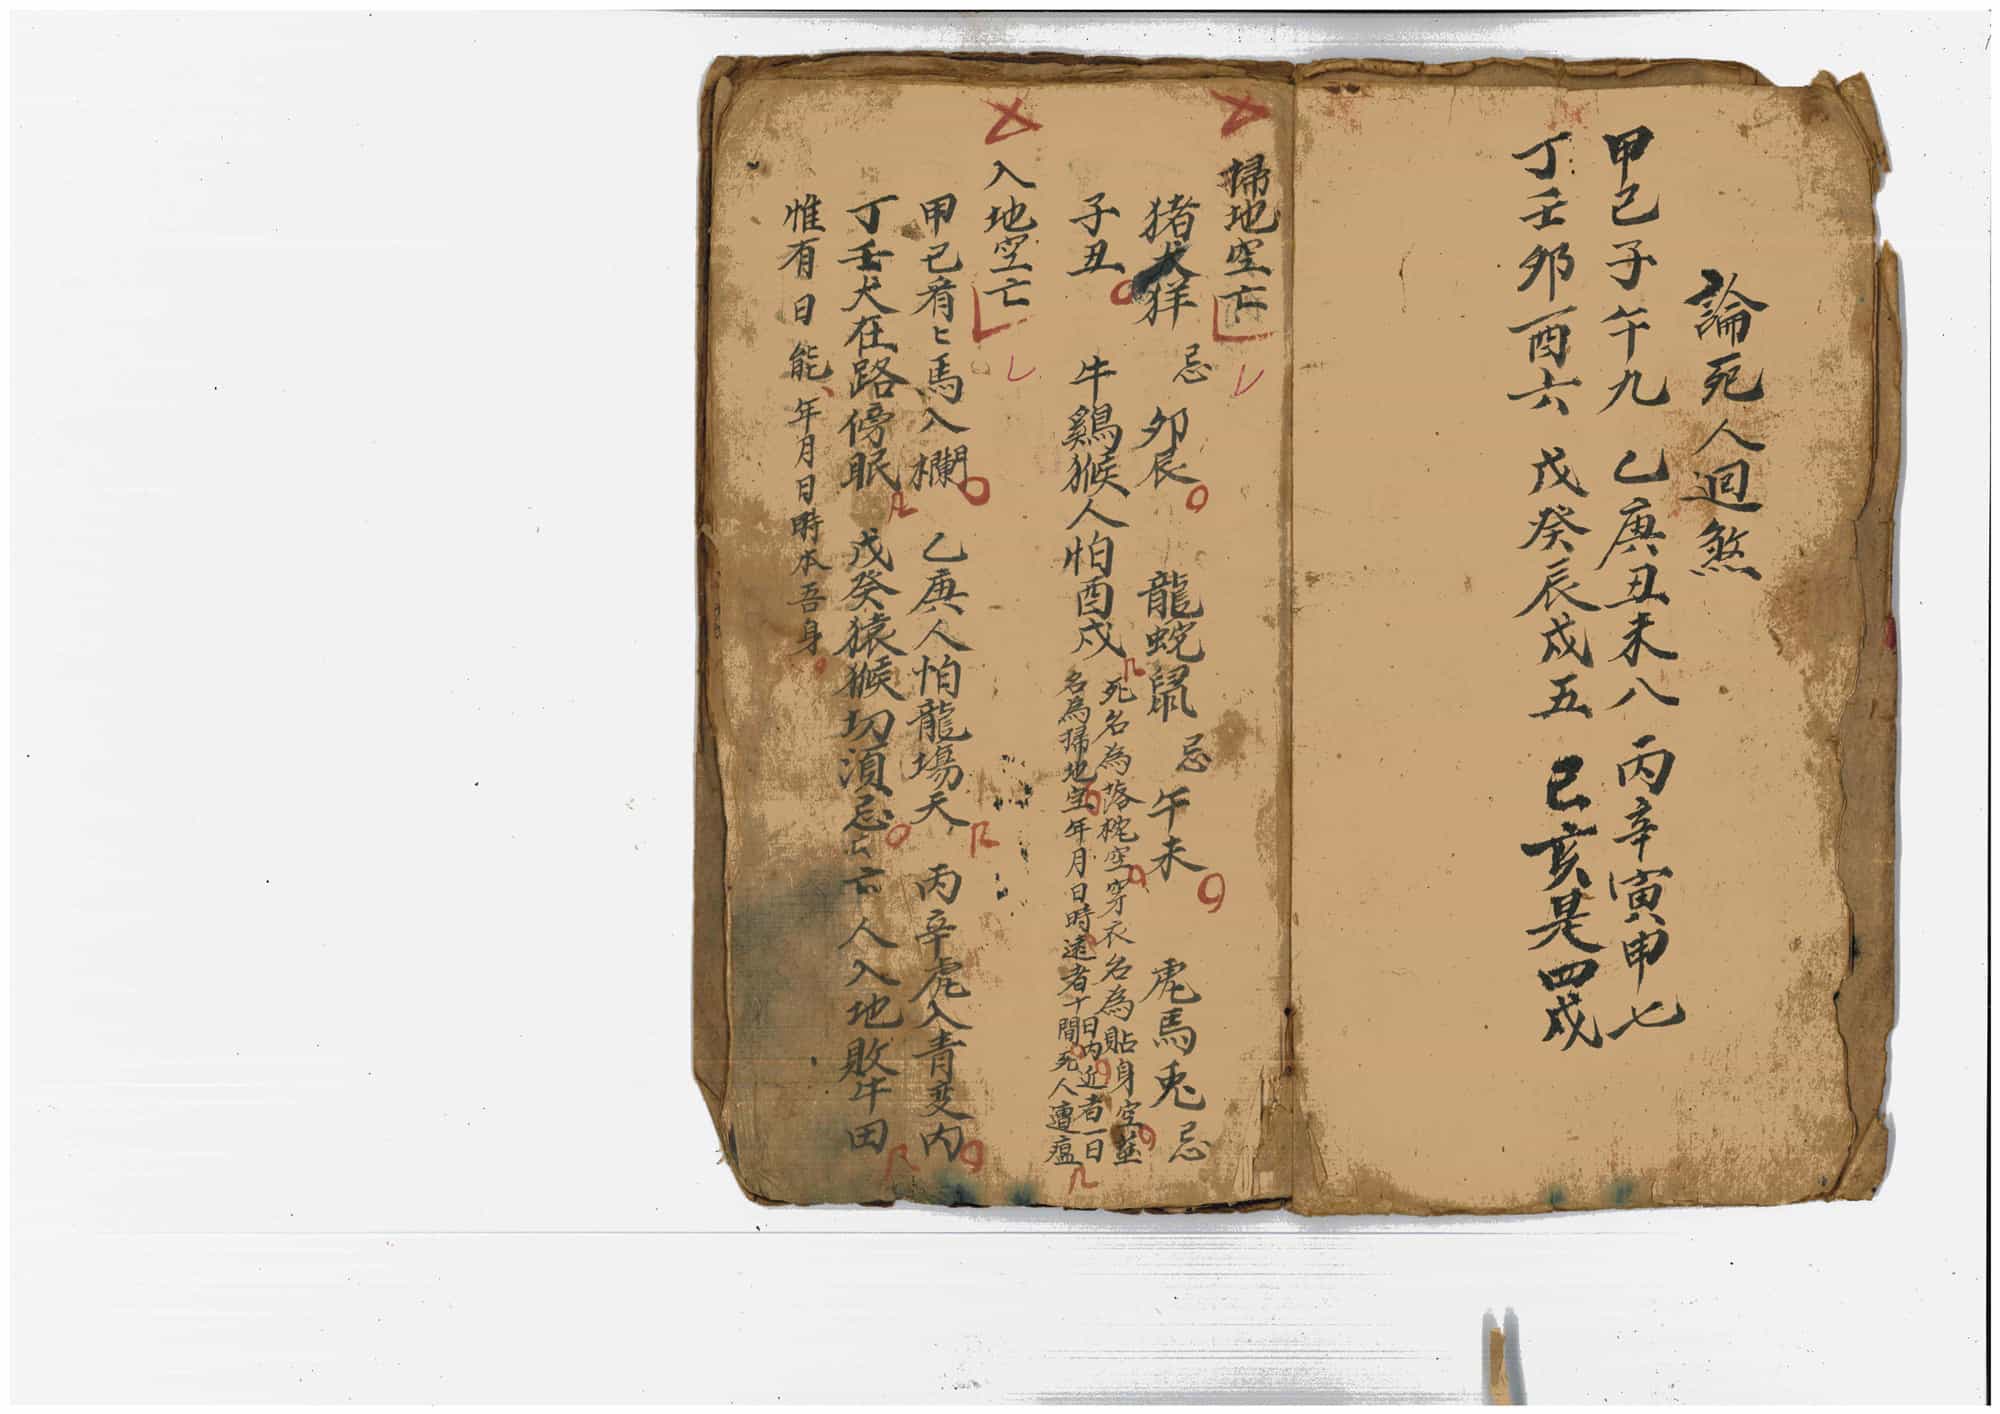 論死人迴煞
甲己子午九 乙庚丑未八 丙辛寅申七
丁壬卯酉六 戊癸辰戌五 巳亥是四成
掃地空亡
猪犬羊 忌卯辰 龍蛇鼠 忌午未 虎馬兎忌
子丑 牛鷄猴人怕酉戌
死名為落枕空穿衣名為貼身空並
名為掃地空年月日時遠者十日內近者一日
間死人遭瘟
入地空亡
甲己肴〻馬入欄 乙庚人怕龍塲天 丙辛虎入青変內
丁壬犬在路傍眠 戊癸猿猴切須忌 亡人入地敗牛田
惟有日能年月日時本吾身